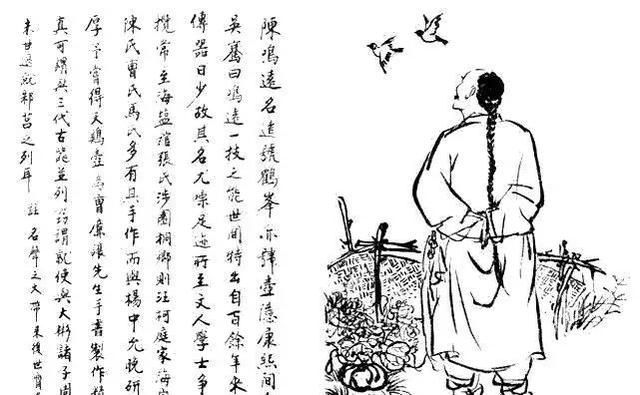 陳鳴遠名遠號鶴峯亦號壺隱康熙間
吳騫曰鳴遠一技之能世間特出自百餘年來
傳器日少故其名尤噪足迹所至文人學士爭
攬常至海鹽館張氏涉園桐鄉則汪柯庭家海寧
陳氏曹氏馬氏多有其手作而與楊中允晚研
厚予嘗得天鷄壺為曹廉讓先生手書製作精
真可謂與三代古器並列竊謂就使與大彬諸子周
未甘退就邾莒之列耳 註名聲之大帶來後世贋